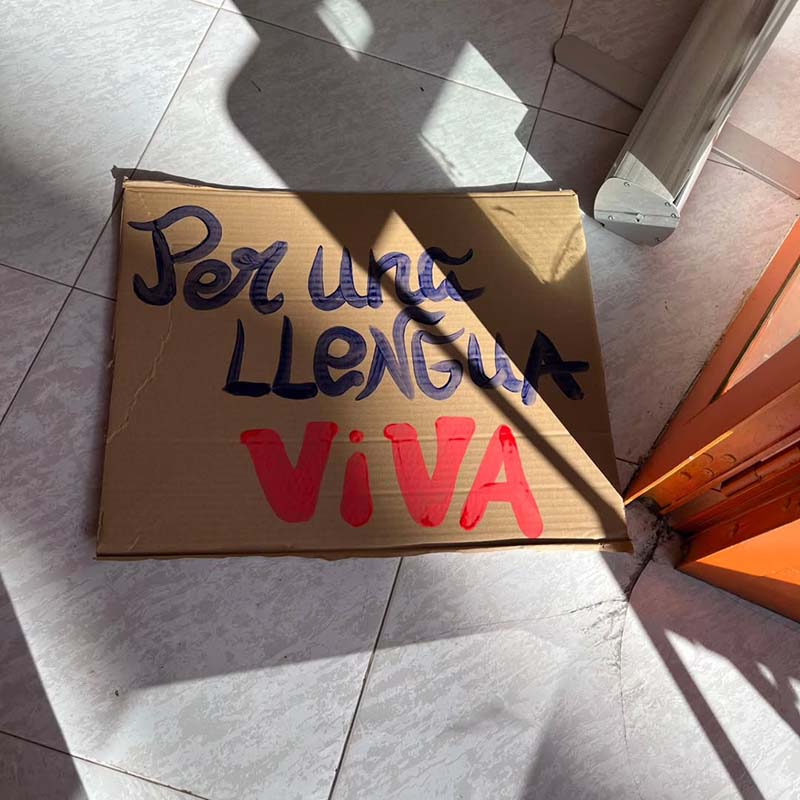 Per una
LLeNGUA
ViVA